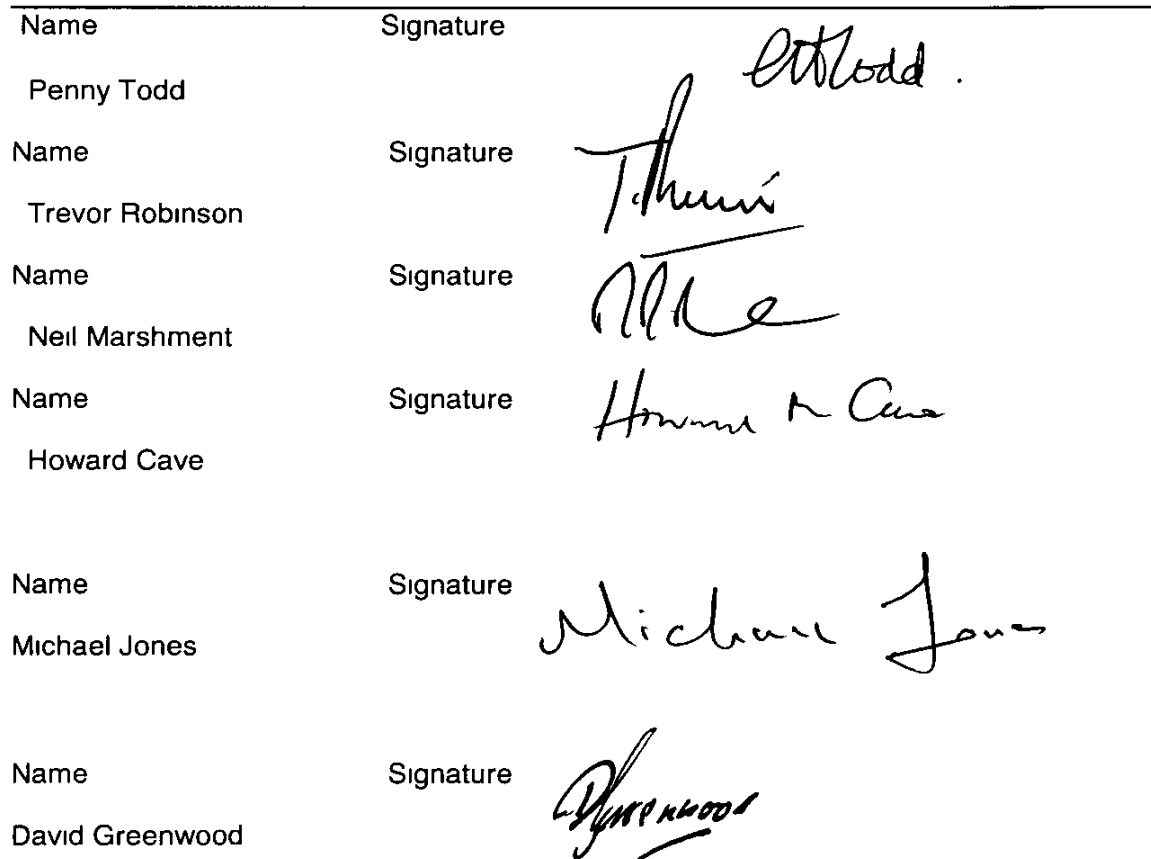 Name Signature
Penny Todd
Name Signature
Trevor Robinson
Name Signature
Neil Marshment
Name Signature
Howard M Cave
Howard Cave
Name Signature
Michael Jones
Michael Jones
Name Signature
DGreenwood
David Greenwood